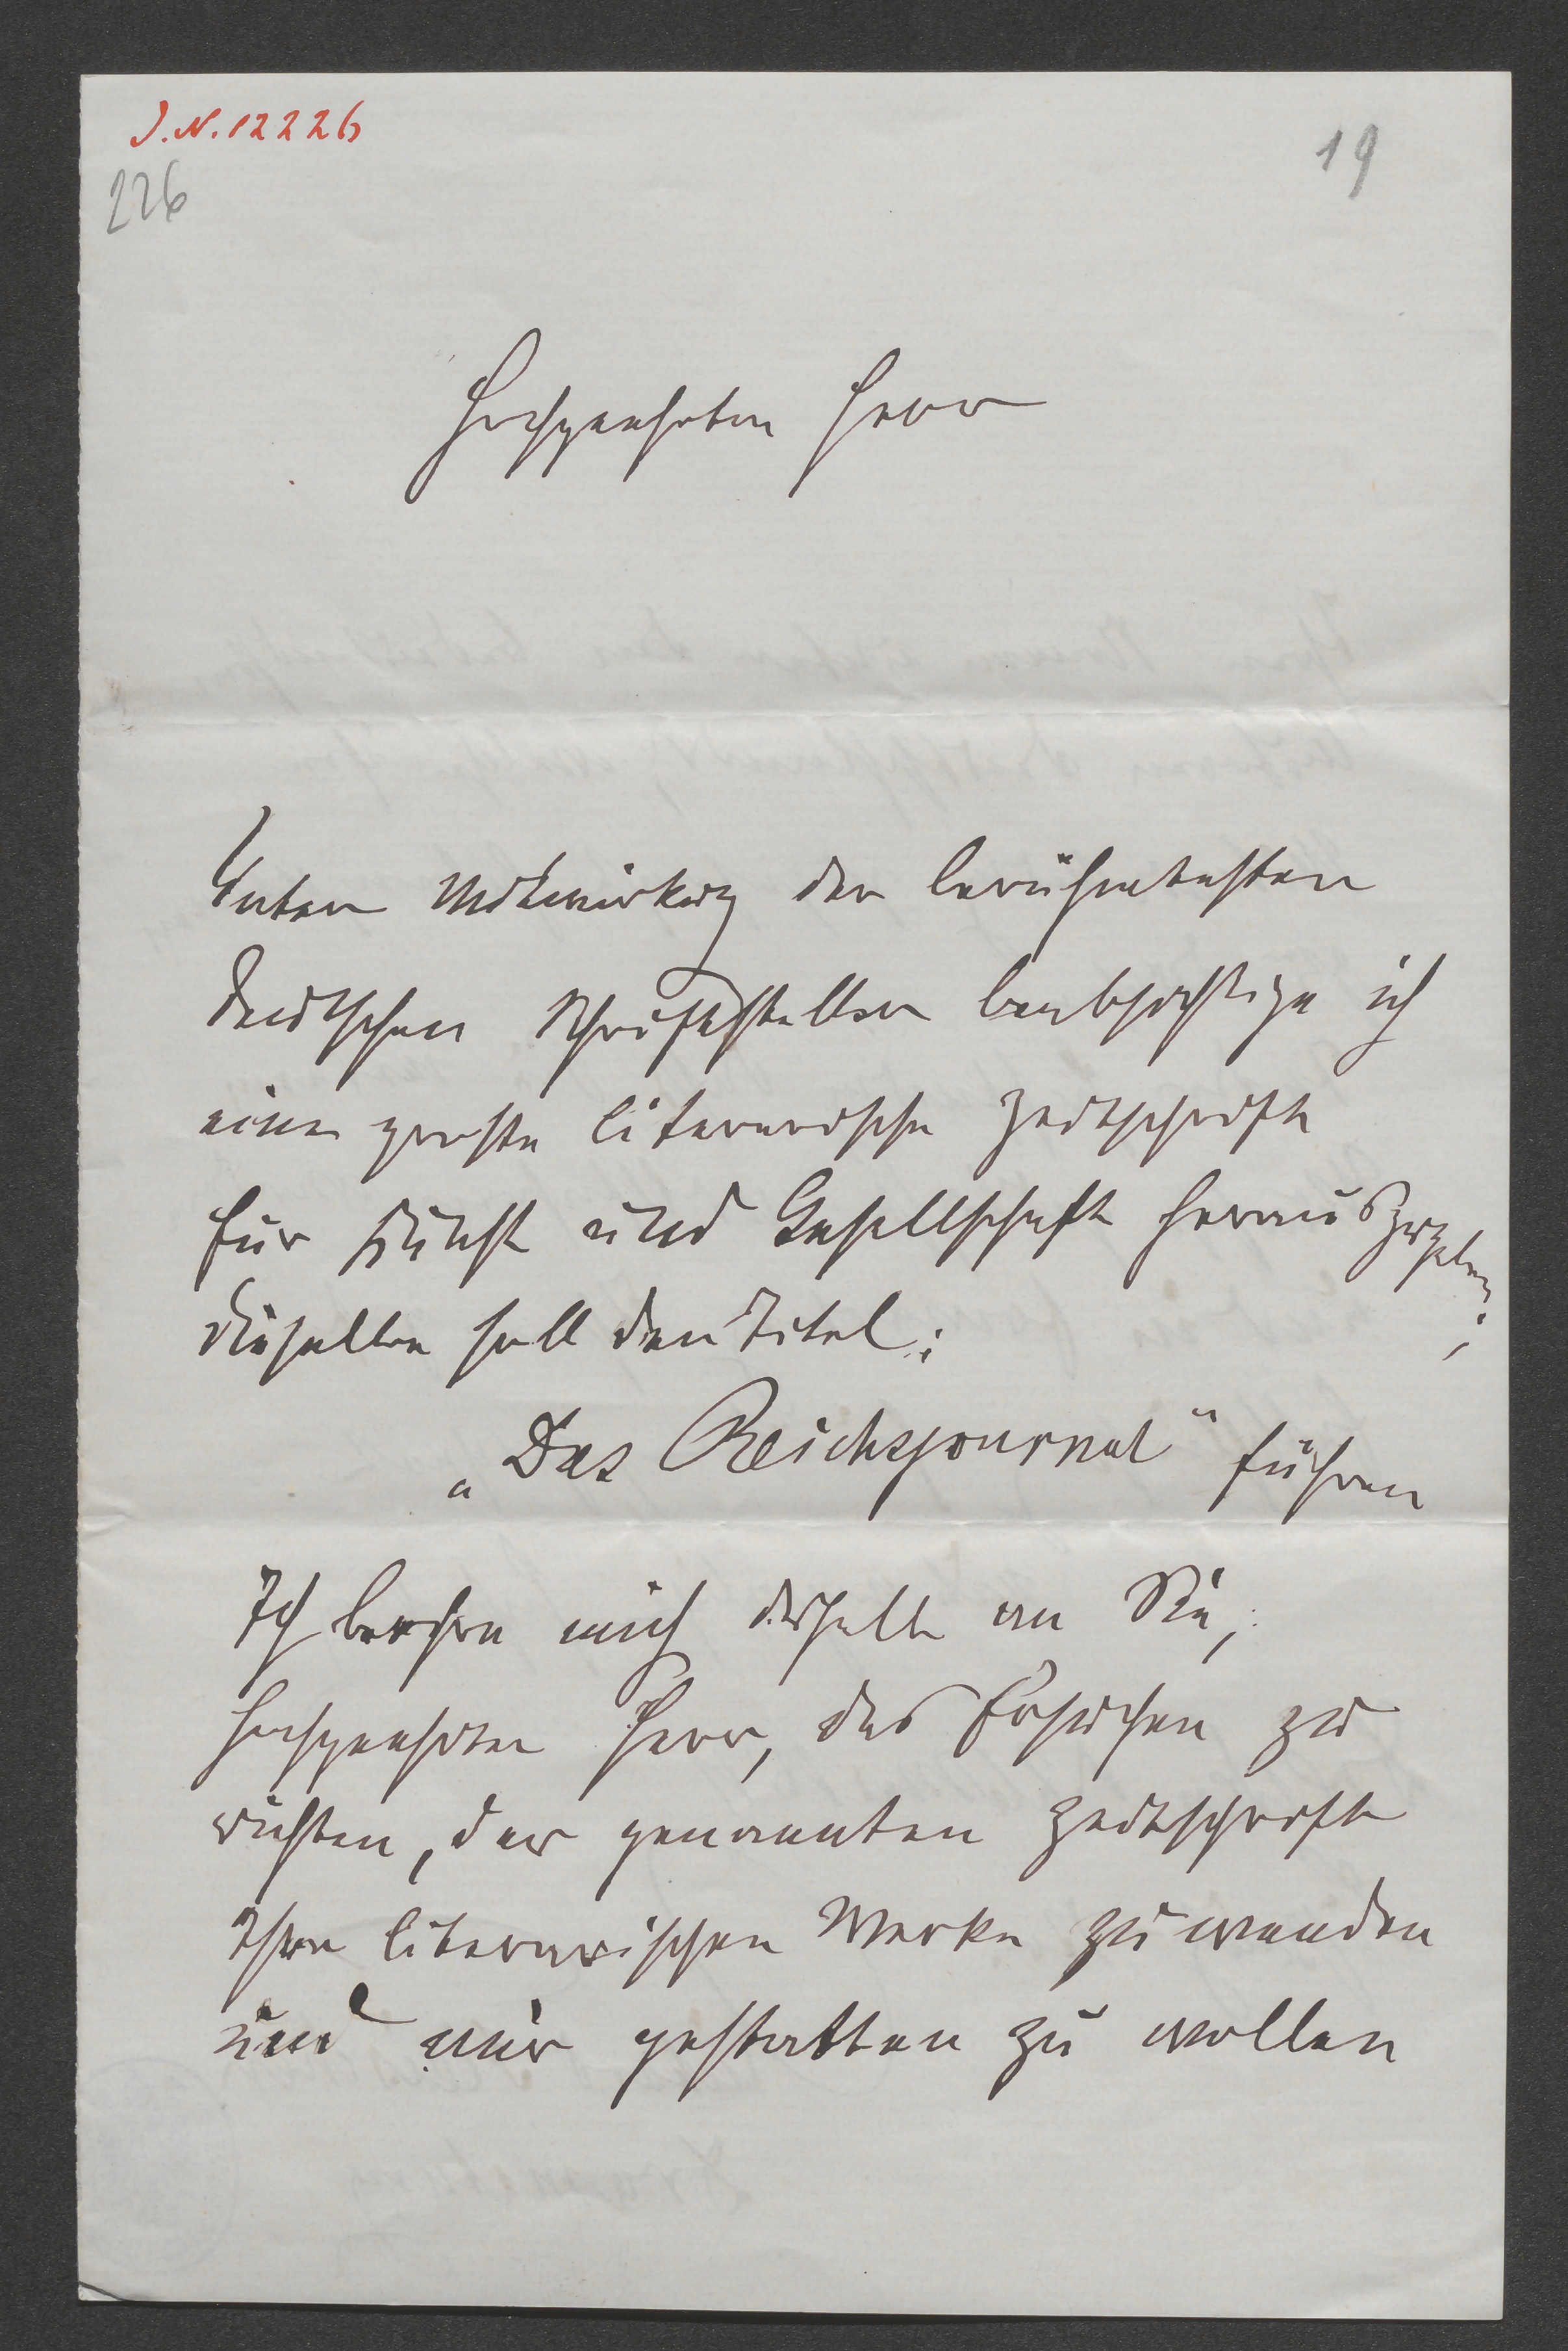 J.N. 12226
226
19
Hochgeehrter Herr
Unter Mitwirkung der berühmtesten
deutschen Schriftsteller beabsichtige ich
eine große literarische Zeitschrift
für Kunst und Gesellschaft herauszugeben;
dieselbe soll den Titel:
„Das Reichsjournal“ führen
Ich beehre mich deshalb an Sie,
hochgeehrter Herr, das Ersuchen zu
richten, der genannten Zeitschrift
Ihre literarischen Werke zuwenden
und mir gestatten zu wollen